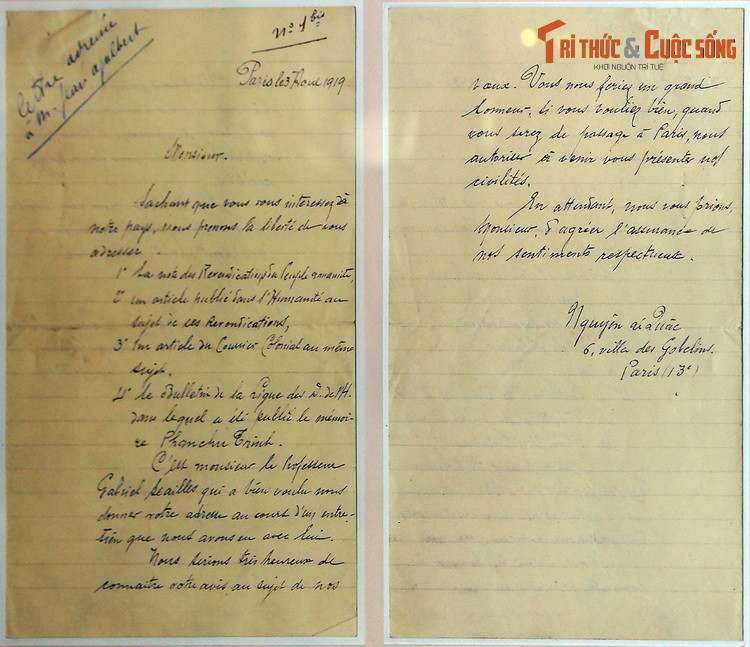 lettre adressée
à M. Jean Ajalbert
Nº 1 bis
Paris le 3 Aout 1919
Monsieur.
Sachant que vous vous interessez à
notre pays, nous prenons la liberté de vous
adresser
1º La note des Revendications du Peuple annamite,
2º un article publié dans l'Humanité au
sujet de ses Revendications,
3º Un article du Courrier Colonial au même
sujet.
4º le Bulletin de la Ligue des D. de l'H.
dans lequel a été publié le mémoi-
re Phanchu Trinh.
C'est monsieur le Professeur
Gabriel Seailles qui a bien voulu nous
donner votre adresse au court d'un entre-
tien que nous avons eu avec lui.
Nous serions très heureux de
connaitre votre avis au sujet de nos
TRI THỨC & CUỘC SỐNG
KHƠI NGUỒN TRÍ TUỆ
vœux. Vous nous feriez un grand
honneur, si vous vouliez bien, quand
vous serez de passage à Paris, nous
autoriser à venir vous présenter nos
civilités.
En attendant, nous vous prions,
Monsieur, d'agréer l'assurance de
nos sentiments respectueux.
Nguyên ái Quâc
6, villa des Gobelins.
Paris (13e)